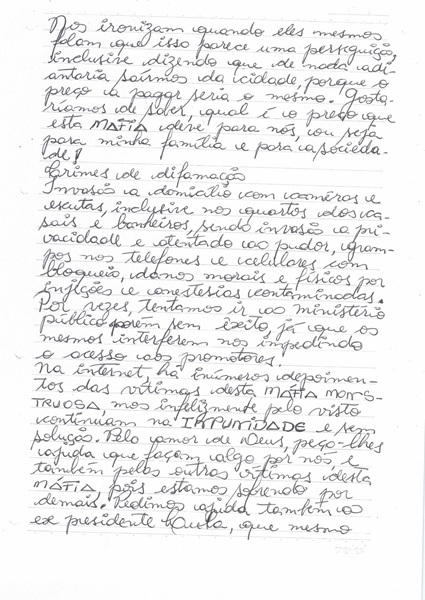 Nos ironizam quando eles mesmos
falam que isso parece uma perseguição,
inclusive dizendo que de nada adi-
antaria sairmos da cidade, porque o
preço a pagar seria o mesmo. Gosta-
ríamos de saber, qual é o preço que
esta MÁFIA deve para nós, ou seja
para minha família e para a socieda-
de!
Crimes de difamação
Invasão a domicílio com câmeras e
escutas, inclusive nos quartos dos ca-
sais e banheiros, sendo invasão a pri-
vacidade e atentado ao pudor, gram-
pos nos telefones e celulares com
bloqueio, danos morais e físicos por
injeções e anestesias contaminadas.
Por vezes, tentamos ir ao ministério
público porém sem êxito, já que os
mesmos interferem nos impedindo
o acesso aos promotores.
Na internet, há inúmeros depoimen-
tos das vítimas desta MÁFIA MONS-
TRUOSA, mas infelizmente pelo visto
continuam na IMPUNIDADE e sem
solução. Pelo amor de Deus, peço-lhes
ajuda que façam algo por nós, e
também pelas outras vítimas desta
MÁFIA pois estamos sofrendo por
demais. Pedimos ajuda também ao
ex presidente Lula, que mesmo